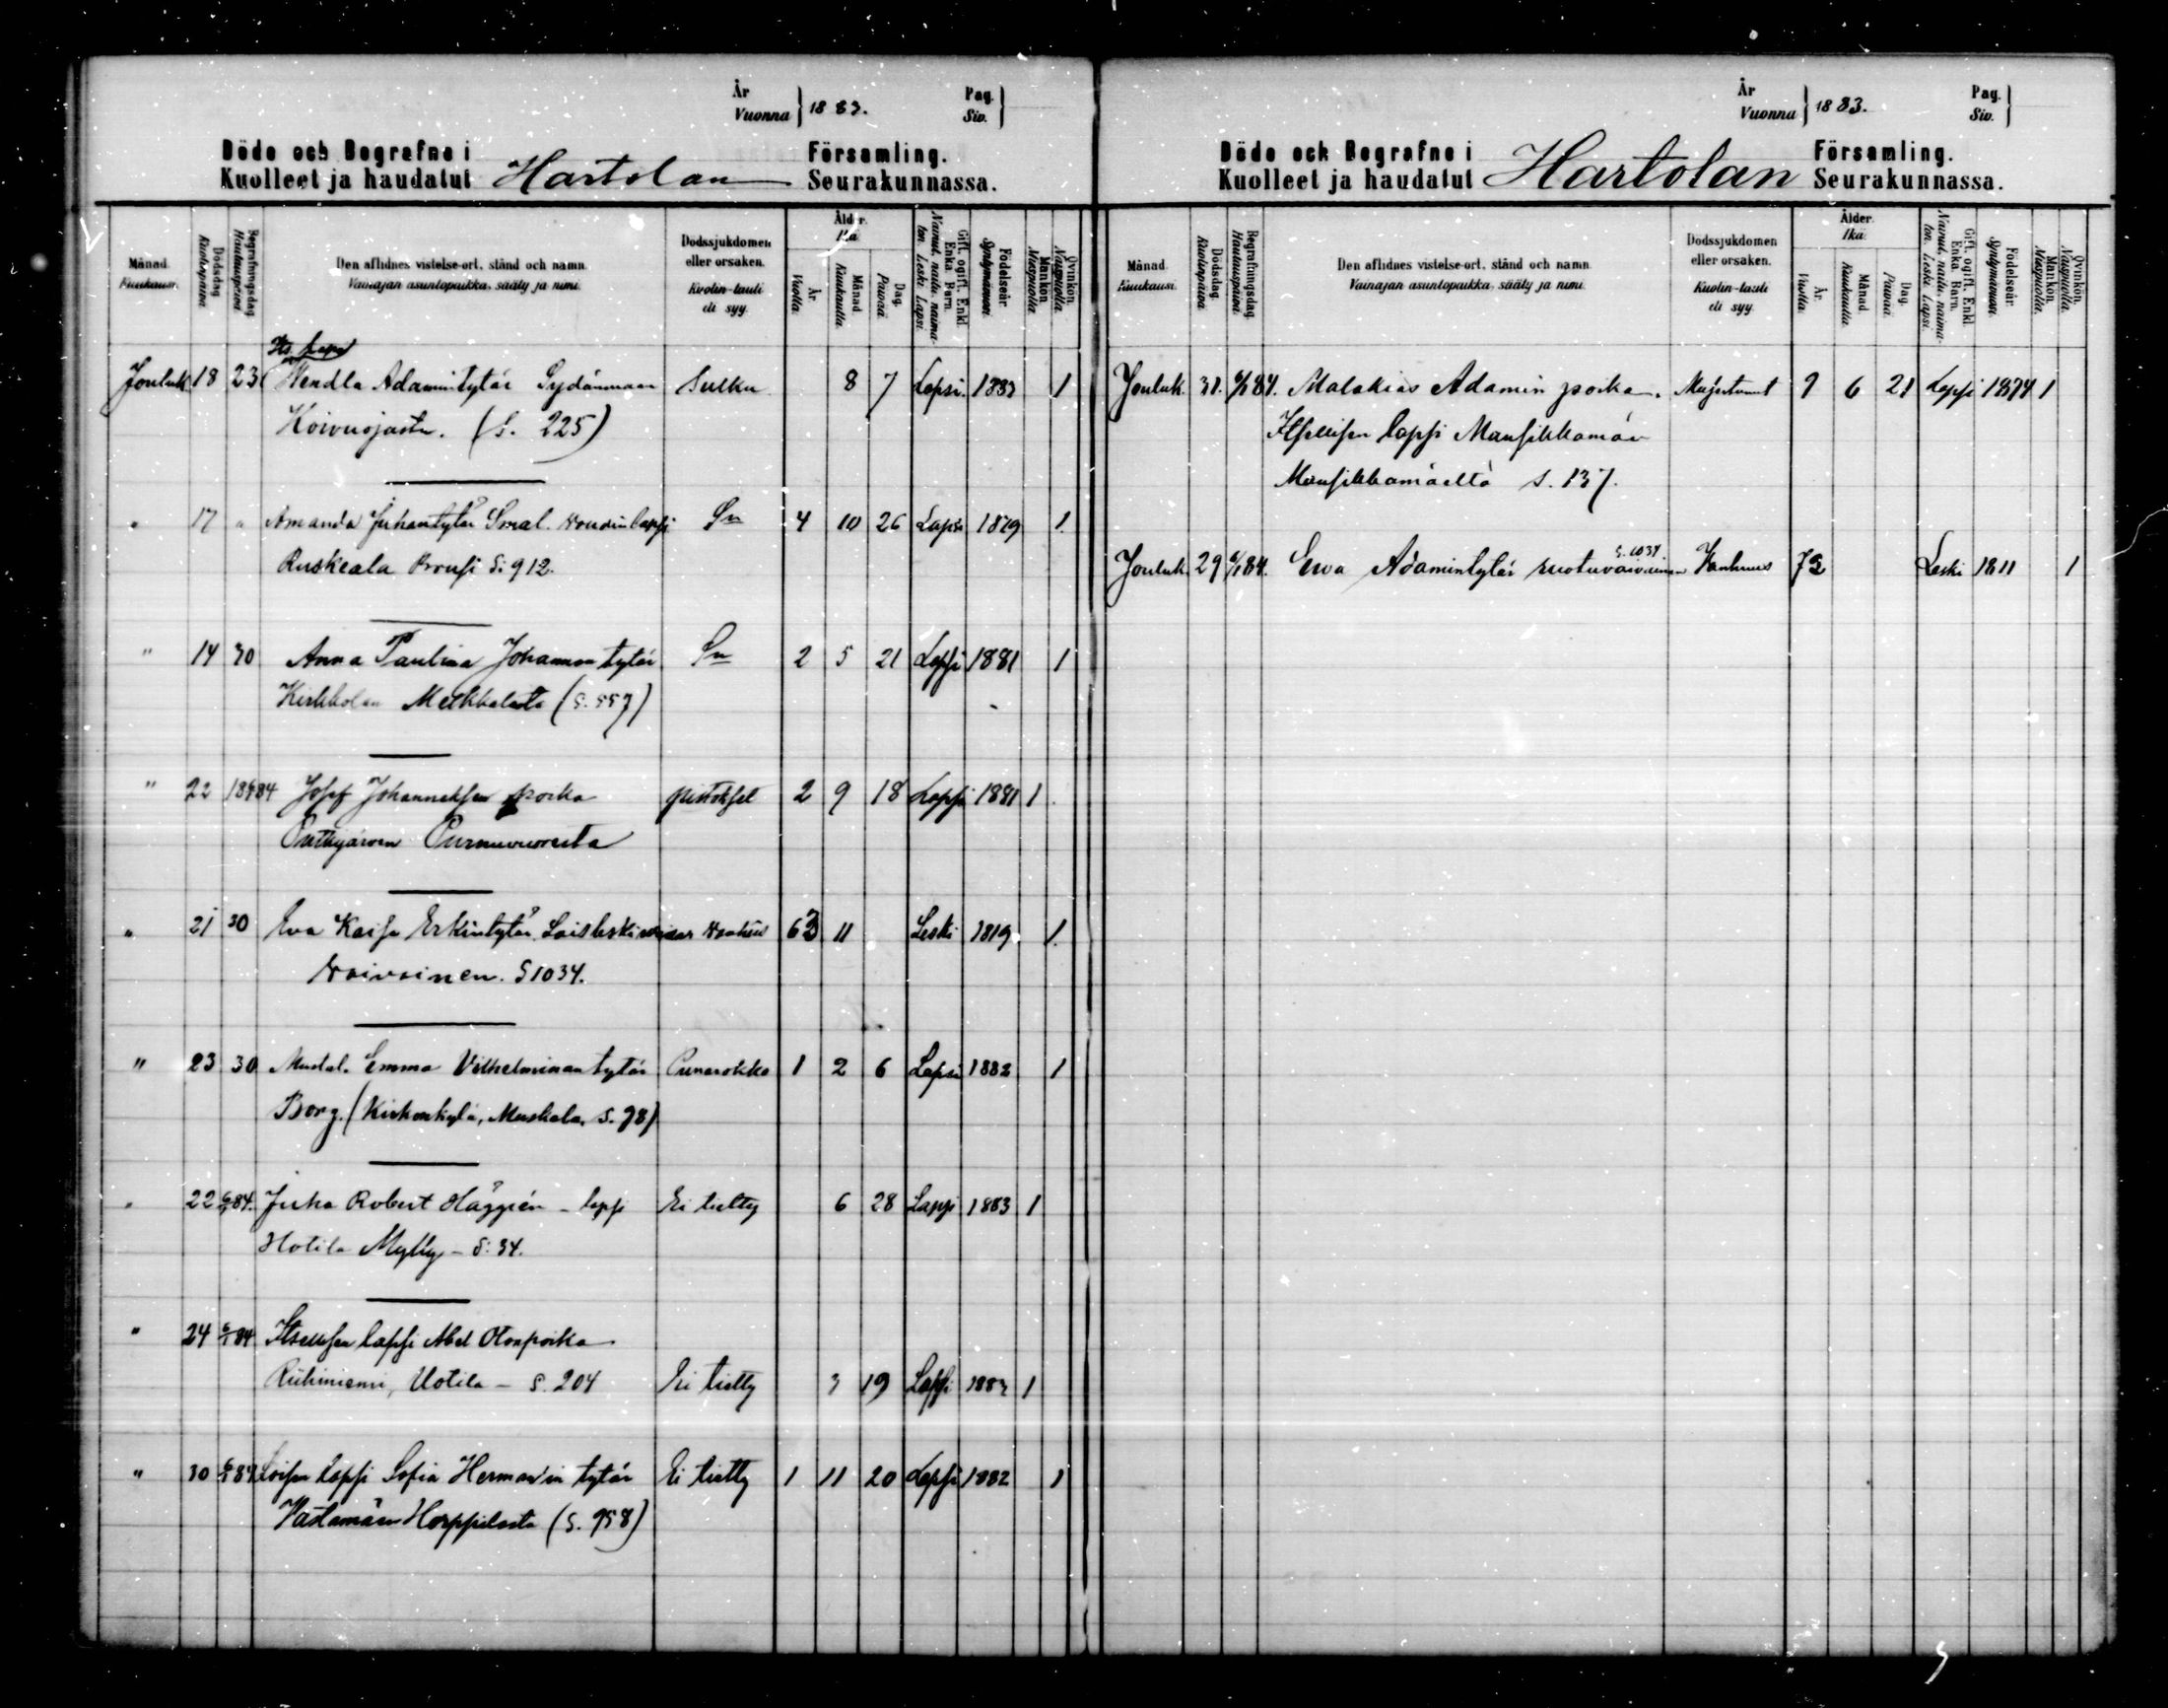 År
Vuonna } 1883.
Pag.
Siv. }
Döde och Begrafne i Församling.
Kuolleet ja haudatut Hartolan Seurakunnassa.
Månad. Kuukausi.
Dödsdag. Kuolinpäivä.
Begrafningsdag. Hautauspäivä.
Den aflidnes vistelse-ort, stånd och namn.
Vainajan asuntopaikka, sääty ja nimi.
Dödssjukdomen
eller orsaken.
Kuolin-tauti
eli syy.
Ålder.
Ikä.
År. Vuotta.
Månad. Kuukautta.
Dag. Päivää.
Gift, ogift, Enkl. Enka. Barn.
Nainut, naitu, naimaton. Leski. Lapsi.
Födelseår. Syntymävuosi.
Mankön. Miespuolia.
Qvinkön. Naispuolia.
Its. lapsi
Jouluk. 18 23 Hendla Adamintytär Sydänmaan Sulku 8 7 Lapsi. 1883 1
Koivusjasta. (S. 225)
" 17 " Amanda Juhantytär Smal. lapsi Sn 4 10 26 Lapsi 1879 1
Ruskeala S. 912.
" 14 30 Anna Paulina Johannan tytär Sn 2 5 21 Lapsi 1881 1
Kirkkolan Meikkalasta (S. 557)
" 22 84 Josef Johanneksen poika pistokset 2 9 18 Lapsi 1881 1
Putkijärven Purnuvuoresta
" 21 30 Eva Kaisa Erkintytär Loisleski vanhuus 63 11 Leski 1819 1
Vaivainen. S 1034.
" 23 30 Mustal. Emma Vilhelminan tytär Punarokko 1 2 6 Lapsi 1882 1
Borg. (Kirkonkylä, Muskala, S. 78)
" 22 6/1 84. Juha Robert Häggrén - lapsi Ei tietty 6 28 Lapsi 1883 1
Hotila Mylly - S: 34.
" 24 6/1 84 Itsellisen lapsi Abel Olonpoika
Riihiniemi, Uotila - S. 204 Ei tietty 3 19 Lapsi 1883 1
" 30 6/1 84 Loisen lapsi Sofia Herman'in tytär Ei tietty 1 11 20 Lapsi 1882 1
Vastamäen Horppilasta (S. 958)
År
Vuonna } 1883.
Pag.
Siv. }
Döde och Begrafne i Församling.
Kuolleet ja haudatut Hartolan Seurakunnassa.
Månad. Kuukausi.
Dödsdag. Kuolinpäivä.
Begrafningsdag. Hautauspäivä.
Den aflidnes vistelse-ort, stånd och namn.
Vainajan asuntopaikka, sääty ja nimi.
Dödssjukdomen
eller orsaken.
Kuolin-tauti
eli syy.
Ålder.
Ikä.
År. Vuotta.
Månad. Kuukautta.
Dag. Päivää.
Gift, ogift, Enkl. Enka. Barn.
Nainut, naitu, naimaton. Leski. Lapsi.
Födelseår. Syntymävuosi.
Mankön. Miespuolia.
Qvinkön. Naispuolia.
Jouluk. 31. 6/1 84. Malakias Adamin poika. 9 6 21 Lapsi 1874 1
Itsellisen lapsi Mansikkamäen
Mansikkamäeltä S. 137.
S. 1034.
Jouluk. 29 6/1 84. Ewa Adamintytär ruotuvaivainen Vanhuus 72 Leski 1811 1